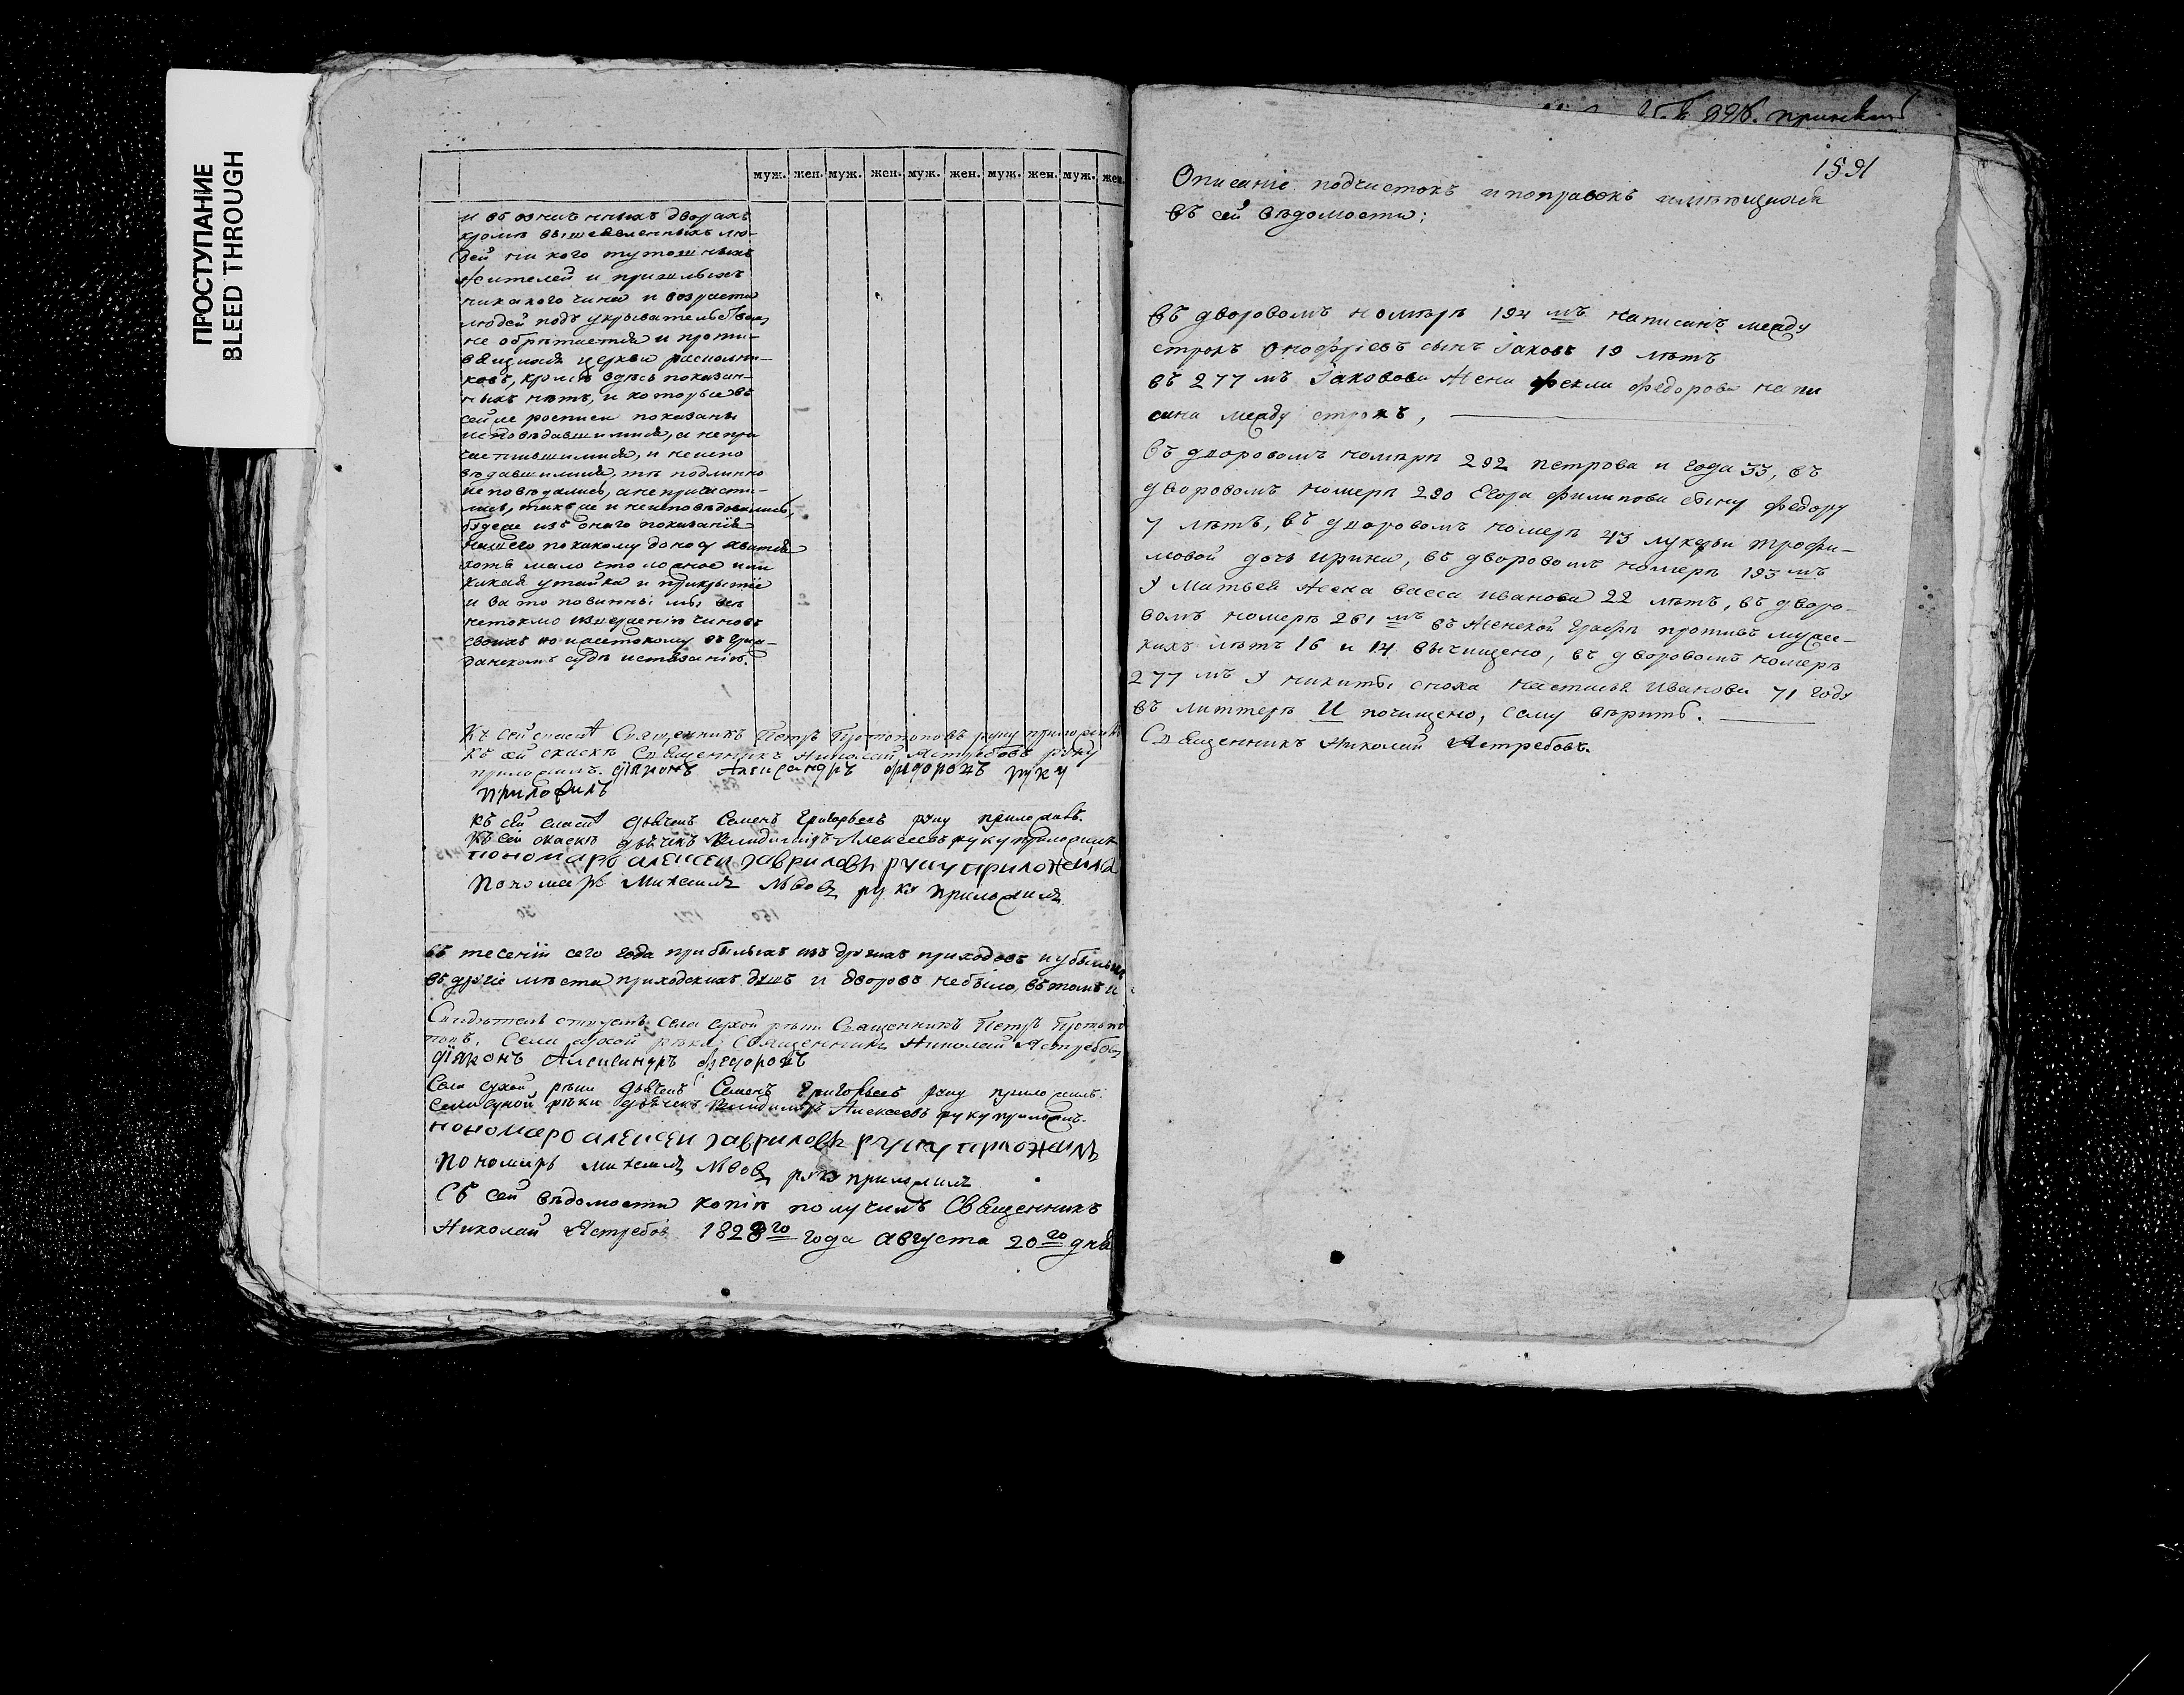 ПРОСТУПАНИЕ
BLEED THROUGH
муж. жен. муж. жен. муж. жен. муж. жен. муж. жен.
и въ означенныхъ дворахъ
кромѣ вышеявленныхъ лю-
дей ни кого тутошныхъ
жителей и пришлыхъ
никакого чина и возраста
людей подъ укрывательствомъ
не обрѣтается и проти-
вящихся церкви расколни-
ковъ, кромѣ здѣсь показан-
ныхъ нѣтъ, и которые въ
сей же росписи показаны
исповѣдавшимися, а не при
частившимися, и неиспо
вѣдавшимися, тѣ подлинно
исповѣдались, а не причасти-
лись, также и неисповѣдовались,
будеже изъ онаго показанія
нашего по какому доносу явится
хотя мало что ложное или
какая утайка и прикрытіе
и за то повинны мы всѣ
нетокмо изверженію чиновъ
своихъ но и жестокому въ граж-
данскомъ судѣ истязанію.
Къ сей сказкѣ Священникъ Петръ Протопоповъ руку приложилъ
Къ сей сказкѣ Священникъ Николай Ястребовъ руку
приложилъ. Діяконъ Александръ Федоровъ руку
приложилъ
Къ сей сказкѣ дьячекъ Семенъ Григорьевъ руку приложилъ.
Къ сей сказкѣ дьячекъ Владимиръ Алексеевъ руку приложилъ
пономаръ алексеи гавриловъ руку приложилъ
Пономарь Михаилъ Львовъ руку приложилъ
Въ теченіи сего года прибылыхъ изъ другихъ приходовъ и убылыхъ
въ другіе мѣста приходскихъ душъ и дворовъ небыло, въ томъ и
Свидѣтельствуемъ Села сухой рѣки Священникъ Петръ Протопо
повъ. Села сухой рѣки Священникъ Николай Ястребовъ
Діяконъ Александръ Федоровъ
Села сухой рѣки дьячекъ Семенъ Григорьевъ руку приложилъ.
Села сухой рѣки дьячекъ Владимиръ Алексеевъ руку приложилъ.
пономаро алексеи гавриловъ руку приложилъ
Пономарь михаилъ Львовъ руку приложилъ
Съ сей вѣдомости копію получилъ Священникъ
Николай Ястребовъ 1828го года августа 20го дня
1591
Описаніе подчистокъ и поправокъ имѣющихся
въ сей вѣдомости:
Въ дворовомъ номѣрѣ 194 мъ написанъ между
строкъ Онофріевъ сынъ Іаковъ 19 лѣтъ
въ 277 мъ Іаковова жена Фекла Федорова напи
сана между строкъ,
Въ дворовомъ номѣрѣ 292 петрова и года 33, въ
дворовомъ номерѣ 290 Егора Филипова сыну Федору
7 лѣтъ, въ дворовомъ номерѣ 43 лукерьи трофи-
мовой дочь ирина, въ дворовомъ номерѣ 193 мъ
У Матвея жена васса иванова 22 лѣтъ, въ дворо-
вомъ номерѣ 261 мъ въ женской графѣ противъ мужес-
кихъ лѣтъ 16 и 14 вычищено, въ дворовомъ номерѣ
277 мъ У никиты сноха настасья Иванова 71 году
въ литтерѣ И почищено, сему вѣрить.
Священникъ Николай Ястребовъ.